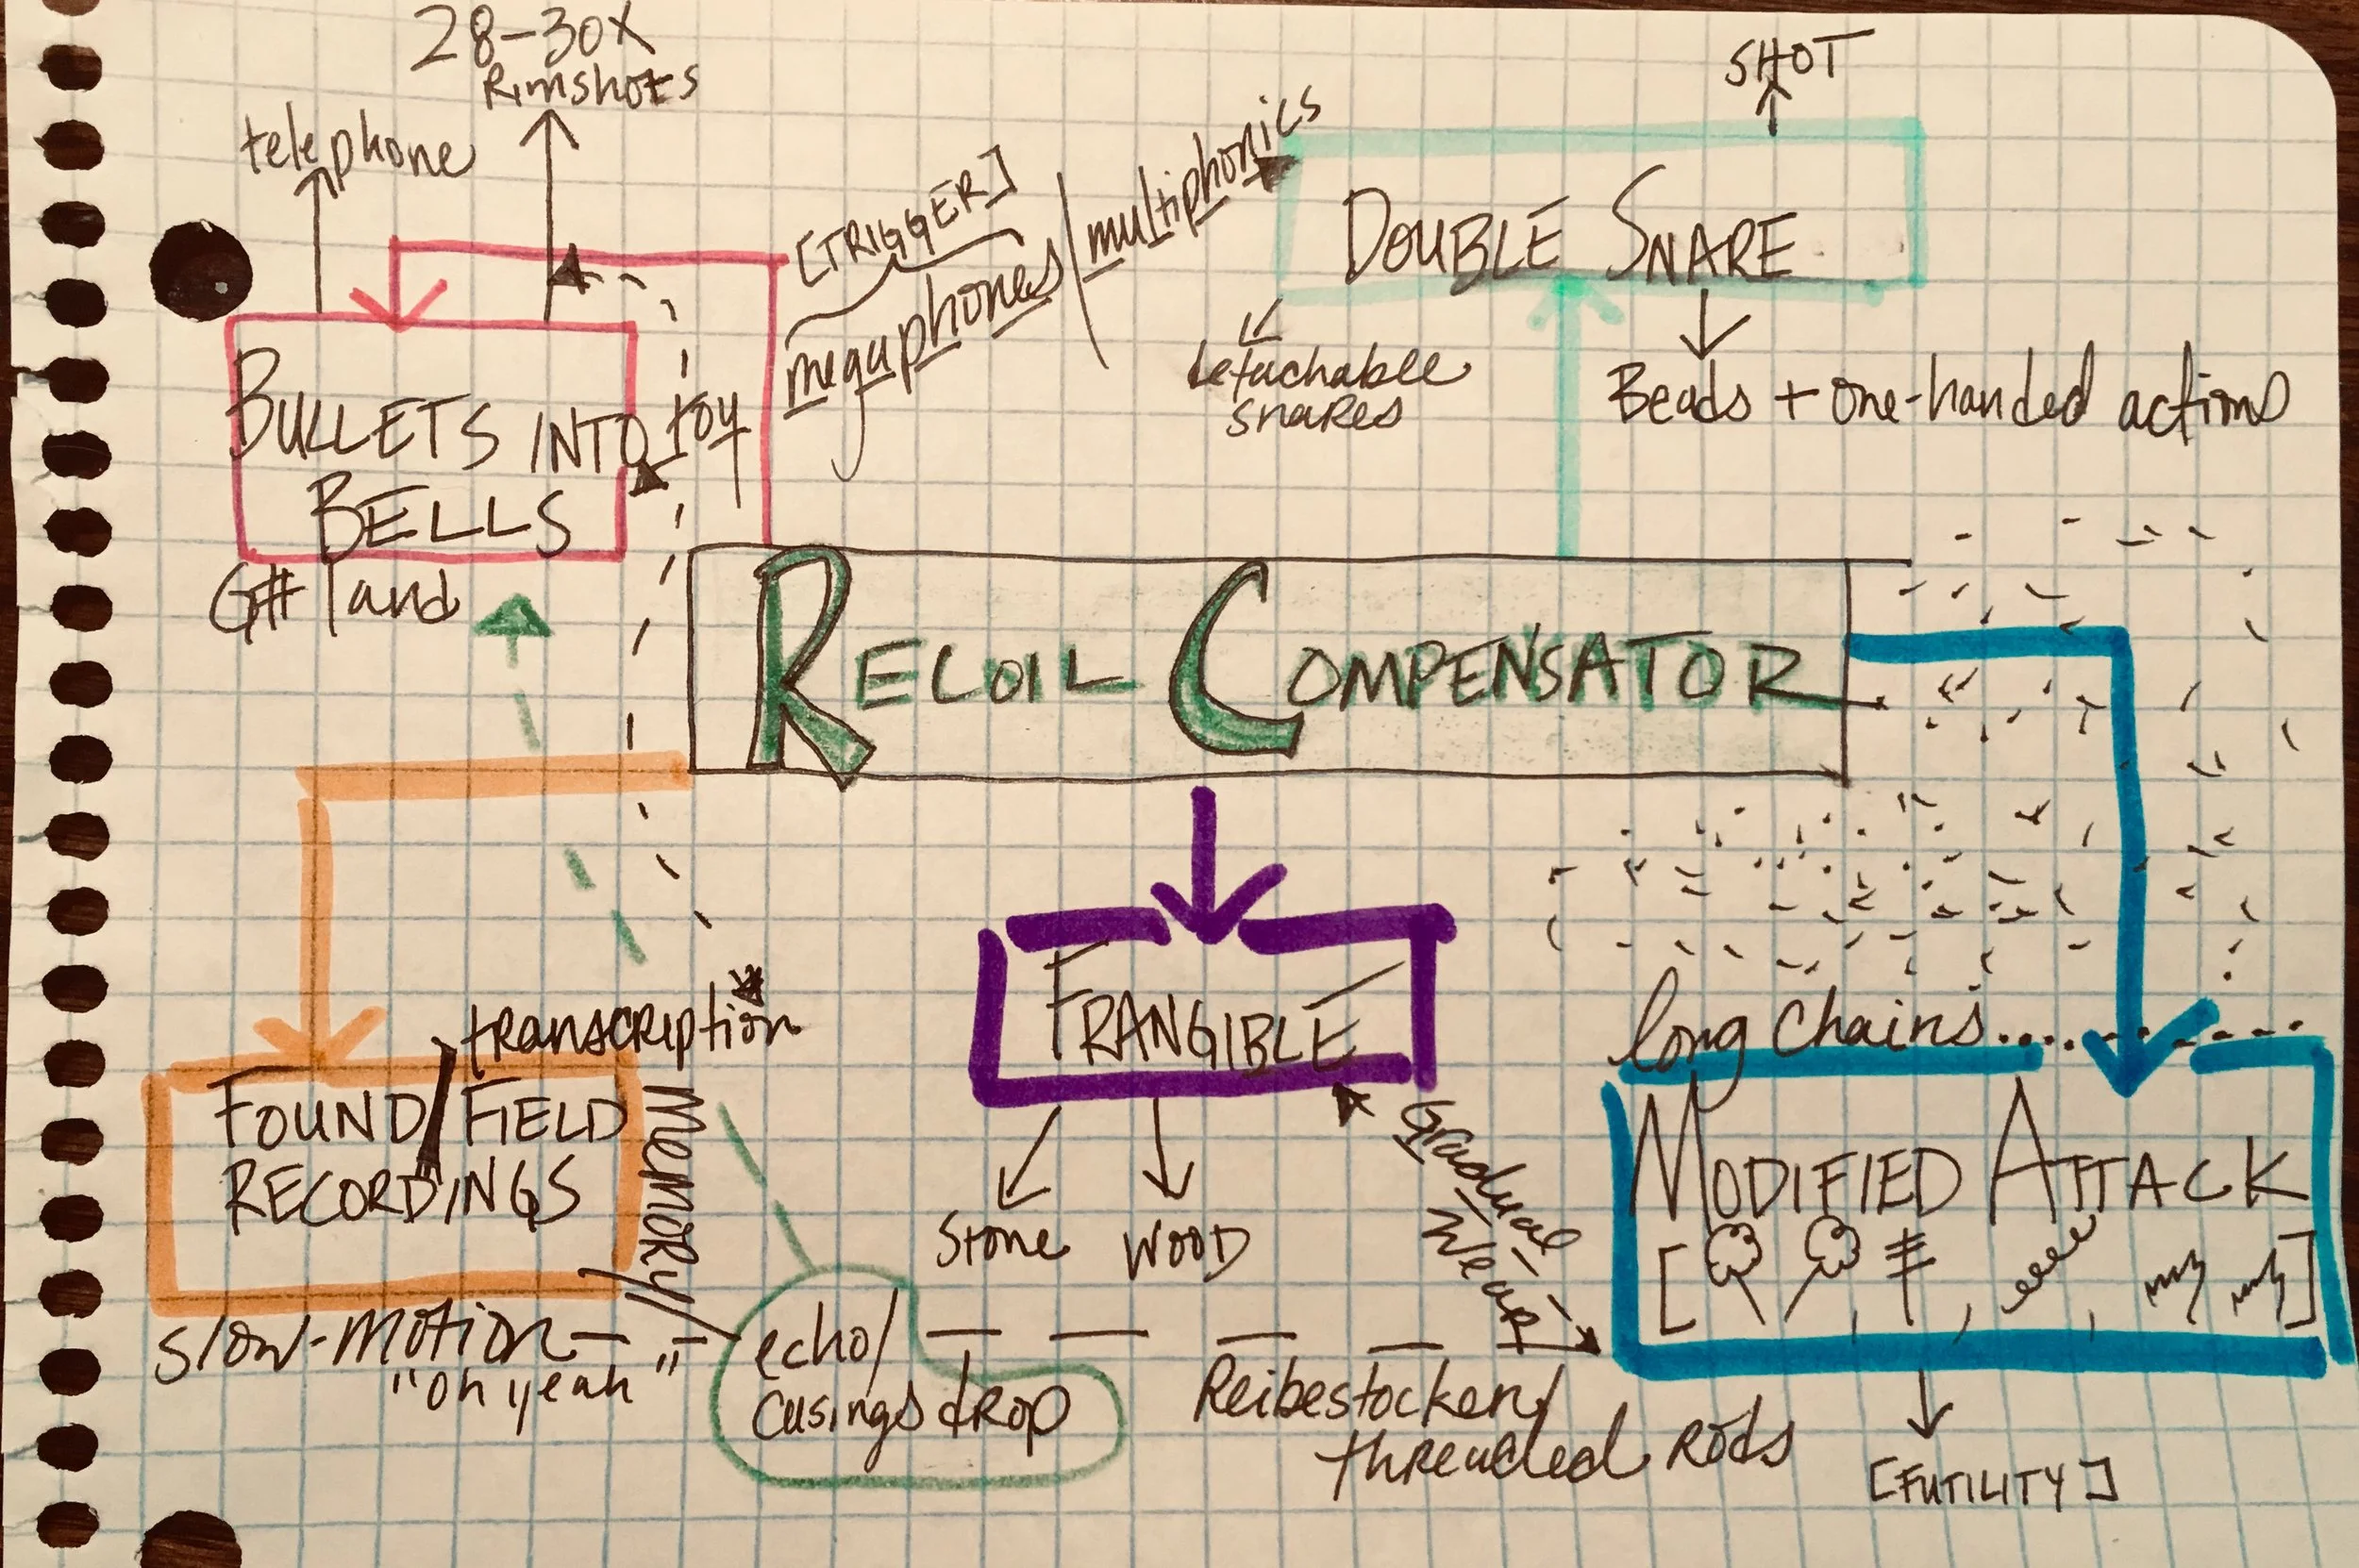 28-30X
Rimshots
telephone
SHOT
[TRIGGER]
toy
megaphones/multiphonics
DOUBLE SNARE
detachable
snares
Beads + one-handed actions
BULLETS INTO
BELLS
G# land
RECOIL COMPENSATOR
FRANGIBLE
Stone
WOOD
transcription
FOUND/FIELD
RECORDINGS
Memory/
slow-motion
"oh yeah"
echo/
casings drop
Gradual
Wear
long chains...........
MODIFIED ATTACK
Reibestocken/
threaded rods
[FUTILITY]